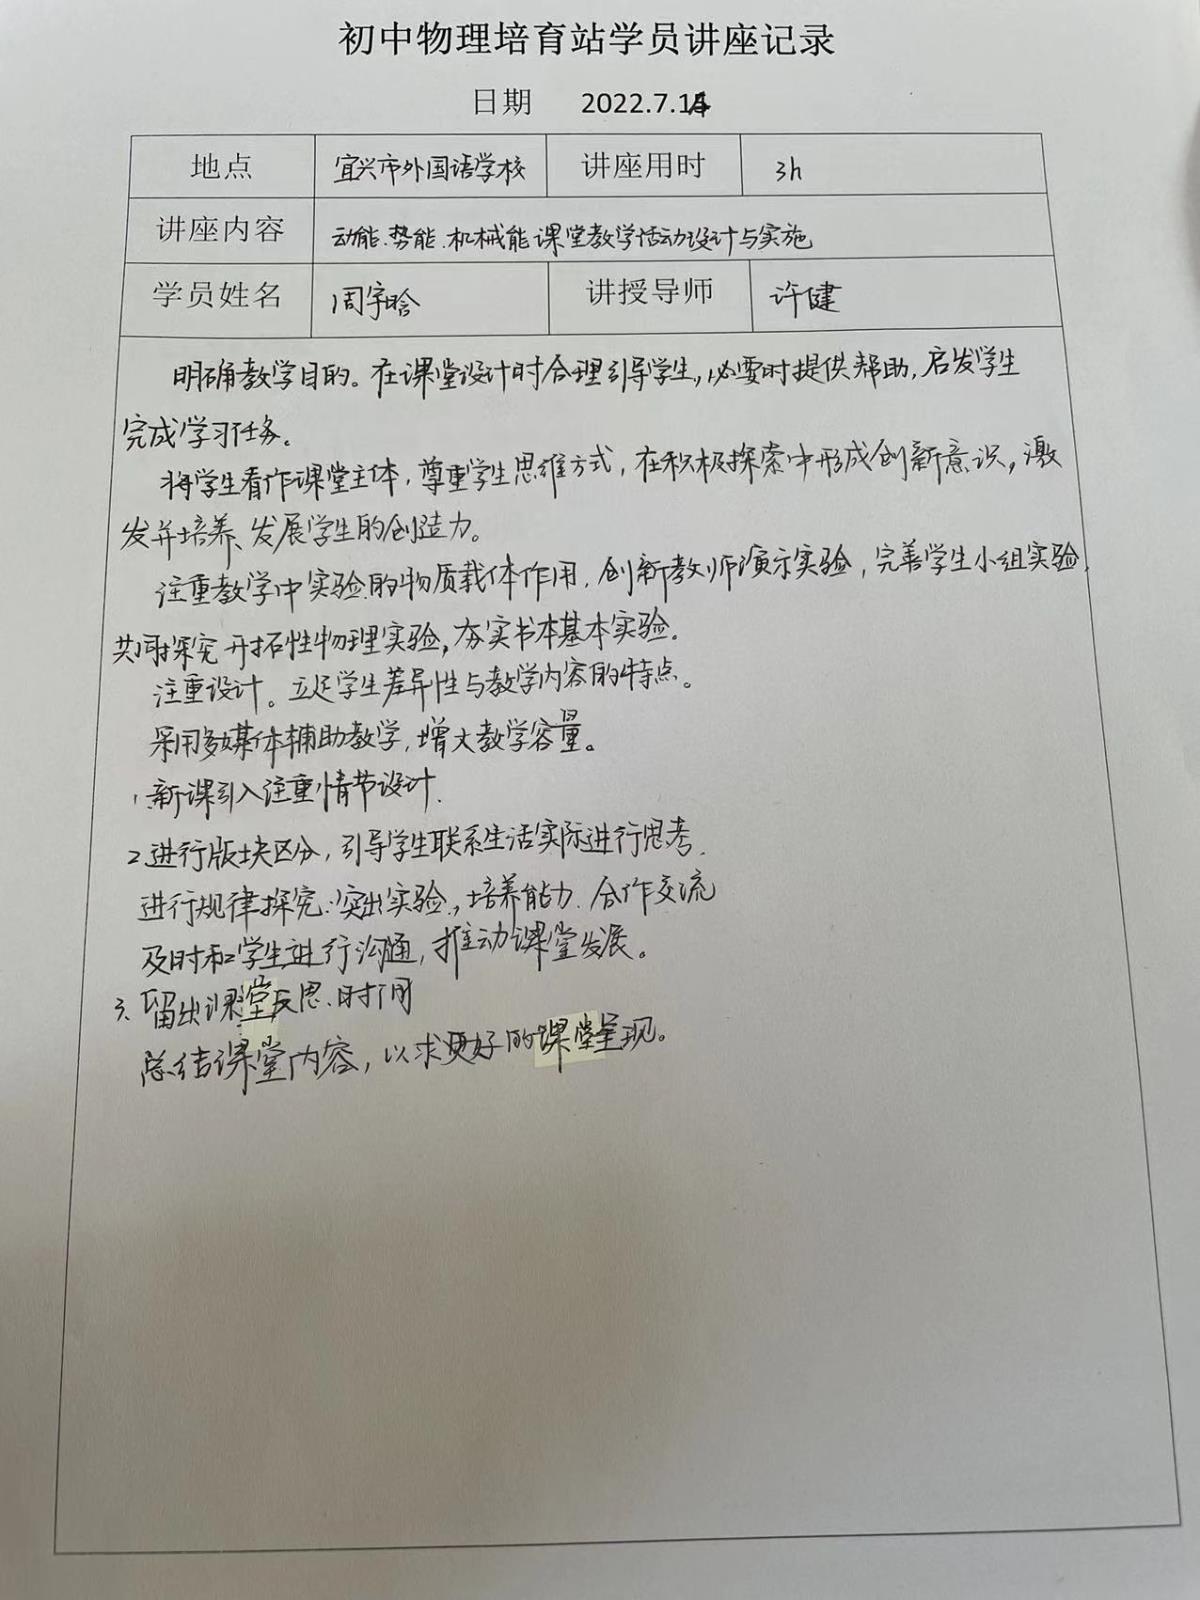 初中物理培育站学员讲座记录
日期 2022.7.14
地点 宜兴市外国语学校 讲座用时 3h
讲座内容 动能.势能.机械能课堂教学活动设计与实施
学员姓名 周宇晗 讲授导师 许健
明确教学目的。在课堂设计时合理引导学生,必要时提供帮助,启发学生
完成学习任务。
将学生看作课堂主体,尊重学生思维方式,在积极探索中形成创新意识,激
发并培养、发展学生的创造力。
注重教学中实验的物质载体作用.创新教师演示实验,完善学生小组实验,
共同探究开拓性物理实验,夯实书本基本实验.
注重设计。立足学生差异性与教学内容的特点。
采用多媒体辅助教学,增大教学容量。
1.新课引入注重情节设计.
2.进行版块区分,引导学生联系生活实际进行思考.
进行规律探究:突出实验,培养能力.合作交流
及时和学生进行沟通,推动课堂发展。
3.留出课堂反思.时间
总结课堂内容,以求更好的课堂呈现。